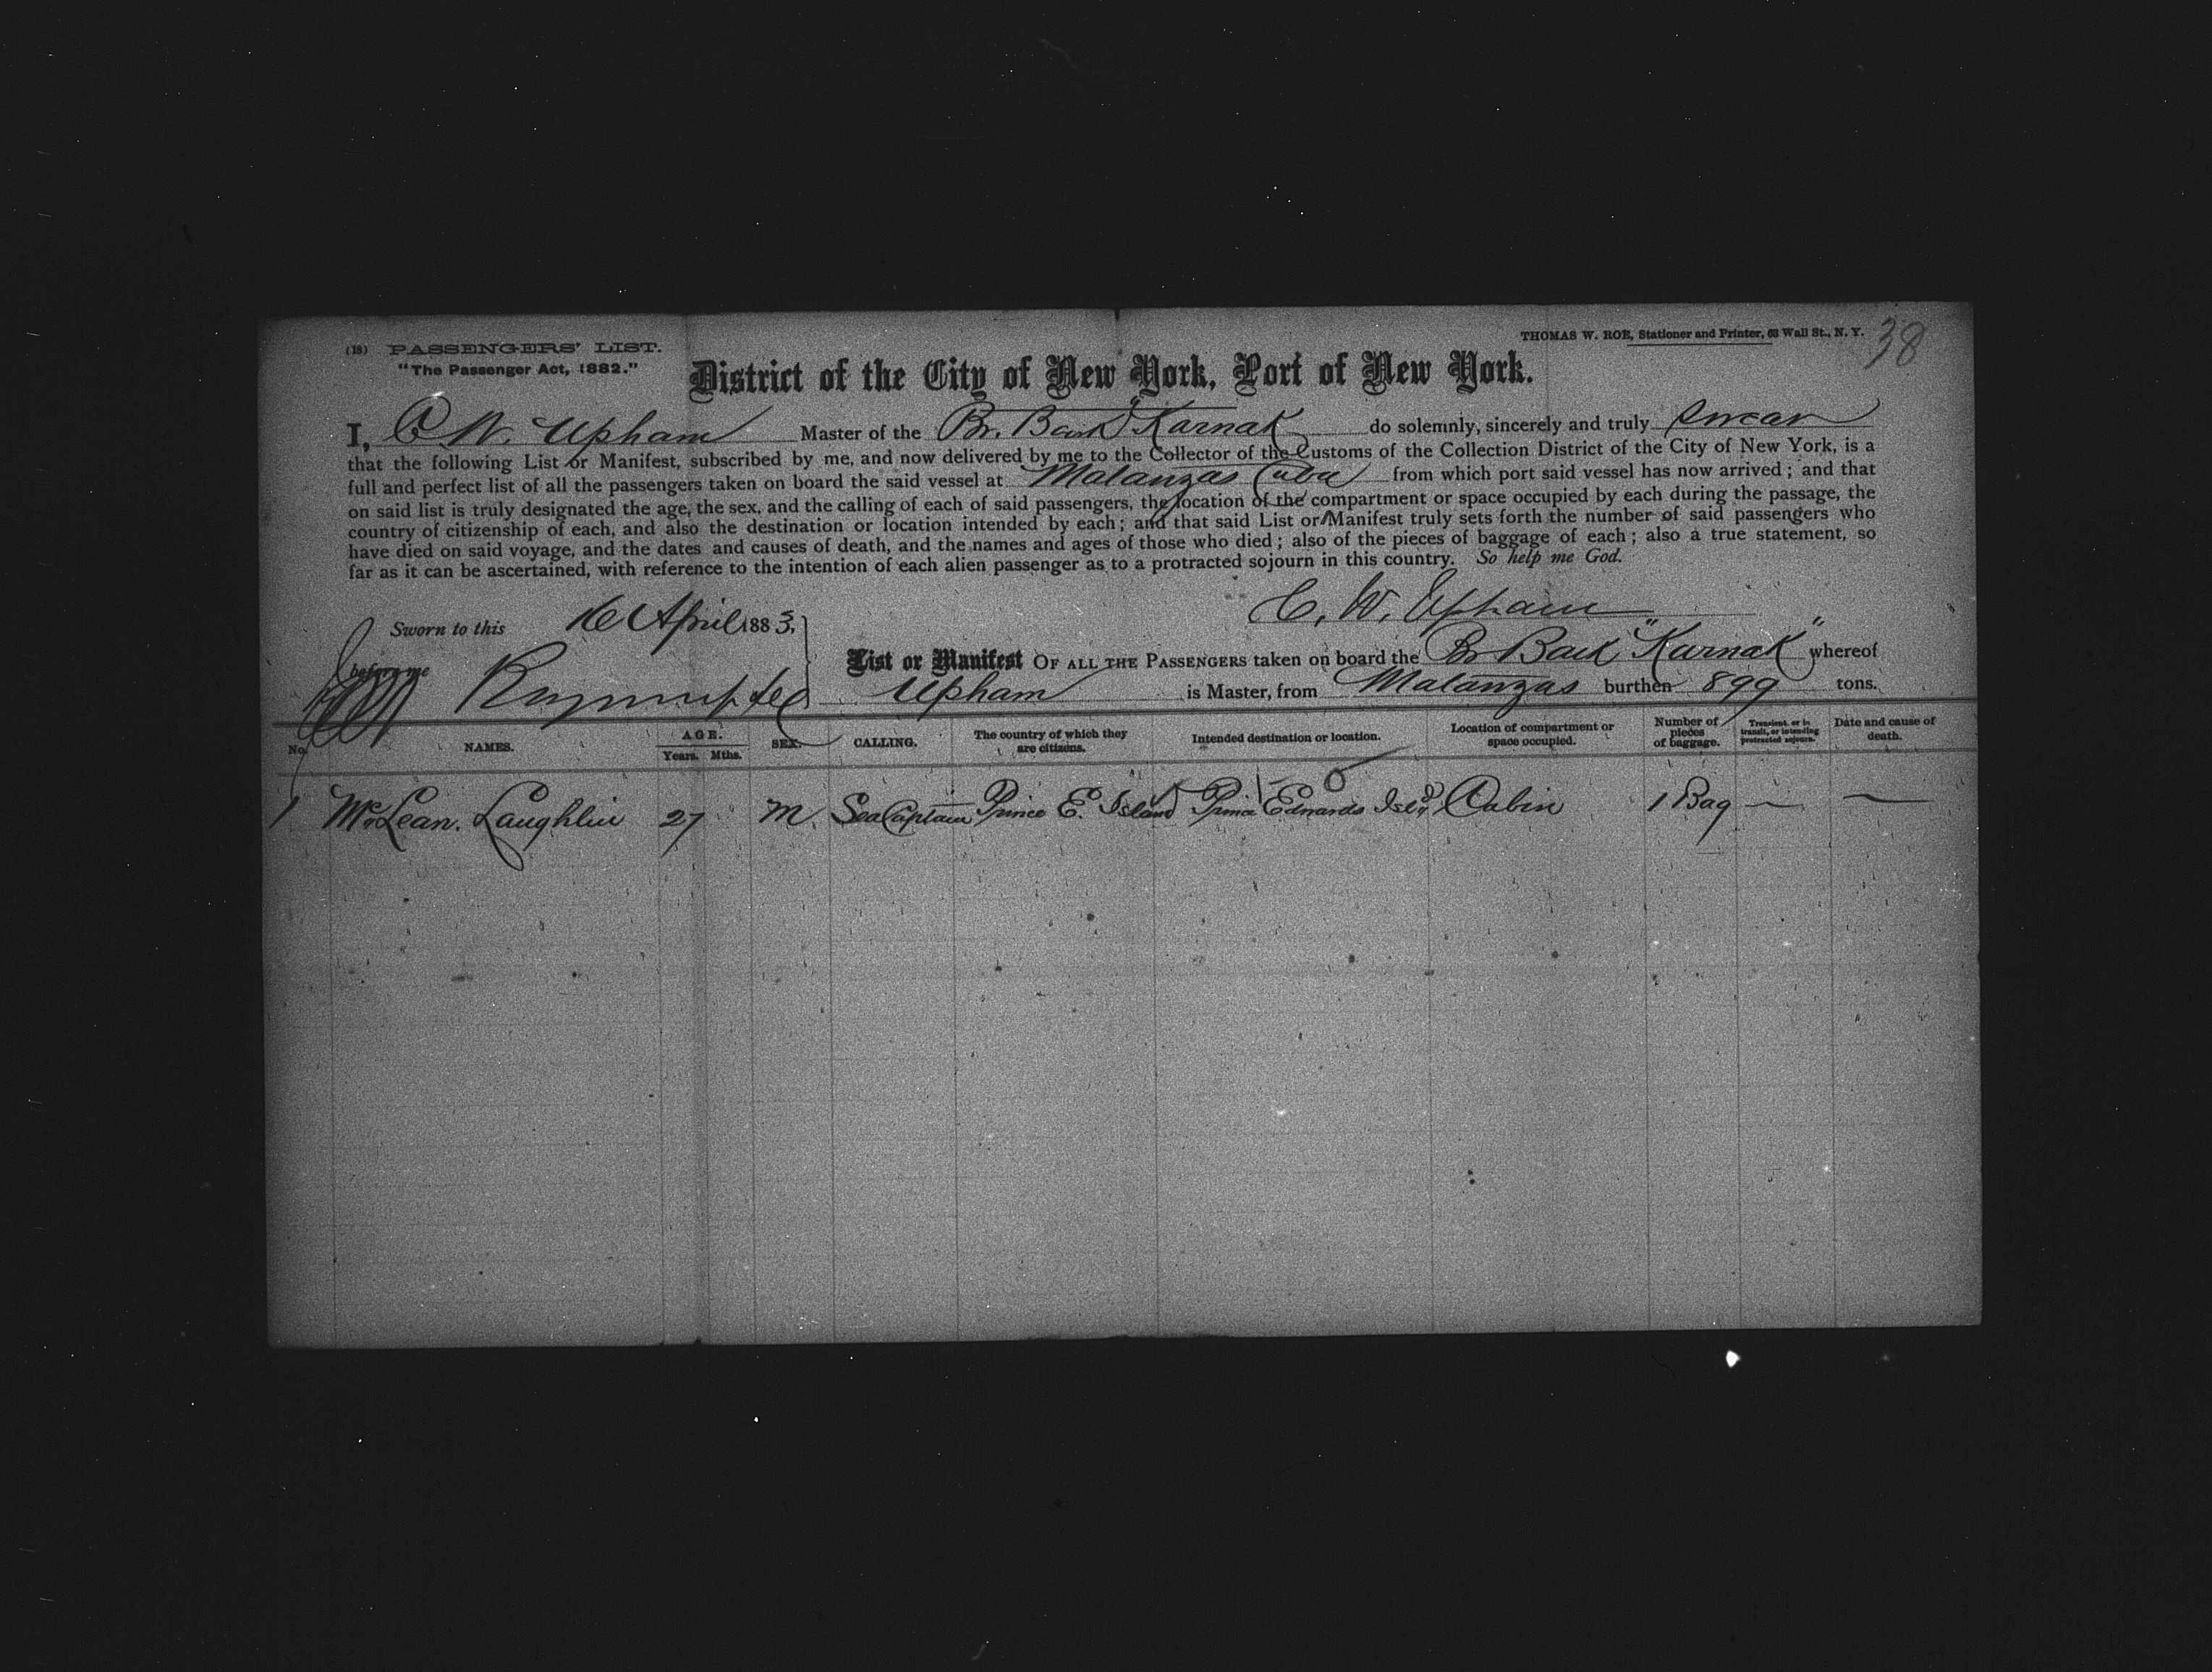 THOMAS W. ROE, Stationer and Printer, 68 Wall St., N. Y. 38
(18) PASSENGERS' LIST.
"The Passenger Act, 1882."
District of the City of New York, Port of New York.
I, C. W. Upham Master of the Br. Bark "Karnak do solemnly, sincerely and truly swear
that the following List or Manifest, subscribed by me, and now delivered by me to the Collector of the Customs of the Collection District of the City of New York, is a
full and perfect list of all the passengers taken on board the said vessel at Matanzas Cuba from which port said vessel has now arrived; and that
on said list is truly designated the age, the sex, and the calling of each of said passengers, the location of the compartment or space occupied by each during the passage, the
country of citizenship of each, and also the destination or location intended by each; and that said List or Manifest truly sets forth the number of said passengers who
have died on said voyage, and the dates and causes of death, and the names and ages of those who died; also of the pieces of baggage of each; also a true statement, so
far as it can be ascertained, with reference to the intention of each alien passenger as to a protracted sojourn in this country. So help me God.
C. W. Upham
Sworn to this 16 April 1883.
before me
List or Manifest OF ALL THE PASSENGERS taken on board the Br Bark "Karnak" whereof
Upham is Master, from Matanzas burthen 899 tons.
No. NAMES. AGE. Years. Mths. SEX. CALLING. The country of which they are citizens. Intended destination or location. Location of compartment or space occupied. Number of pieces of baggage. Transient, or in transit, or intending protracted sojourn. Date and cause of death.
1 McLean. Laughlin 27 M Sea Captain Prince E. Island Prince Edwards Isld Cabin 1 Bag — —